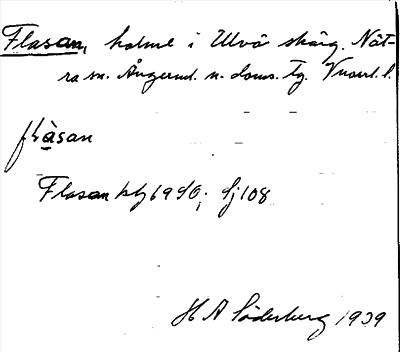 Flasan, holme i Ulvö skärg. Nät-
ra sn. Ångerml. n. doms. tg. Vnorrl. l.
flàsan
Flasan ktj 1940; Sj 108
H A Söderberg 1939